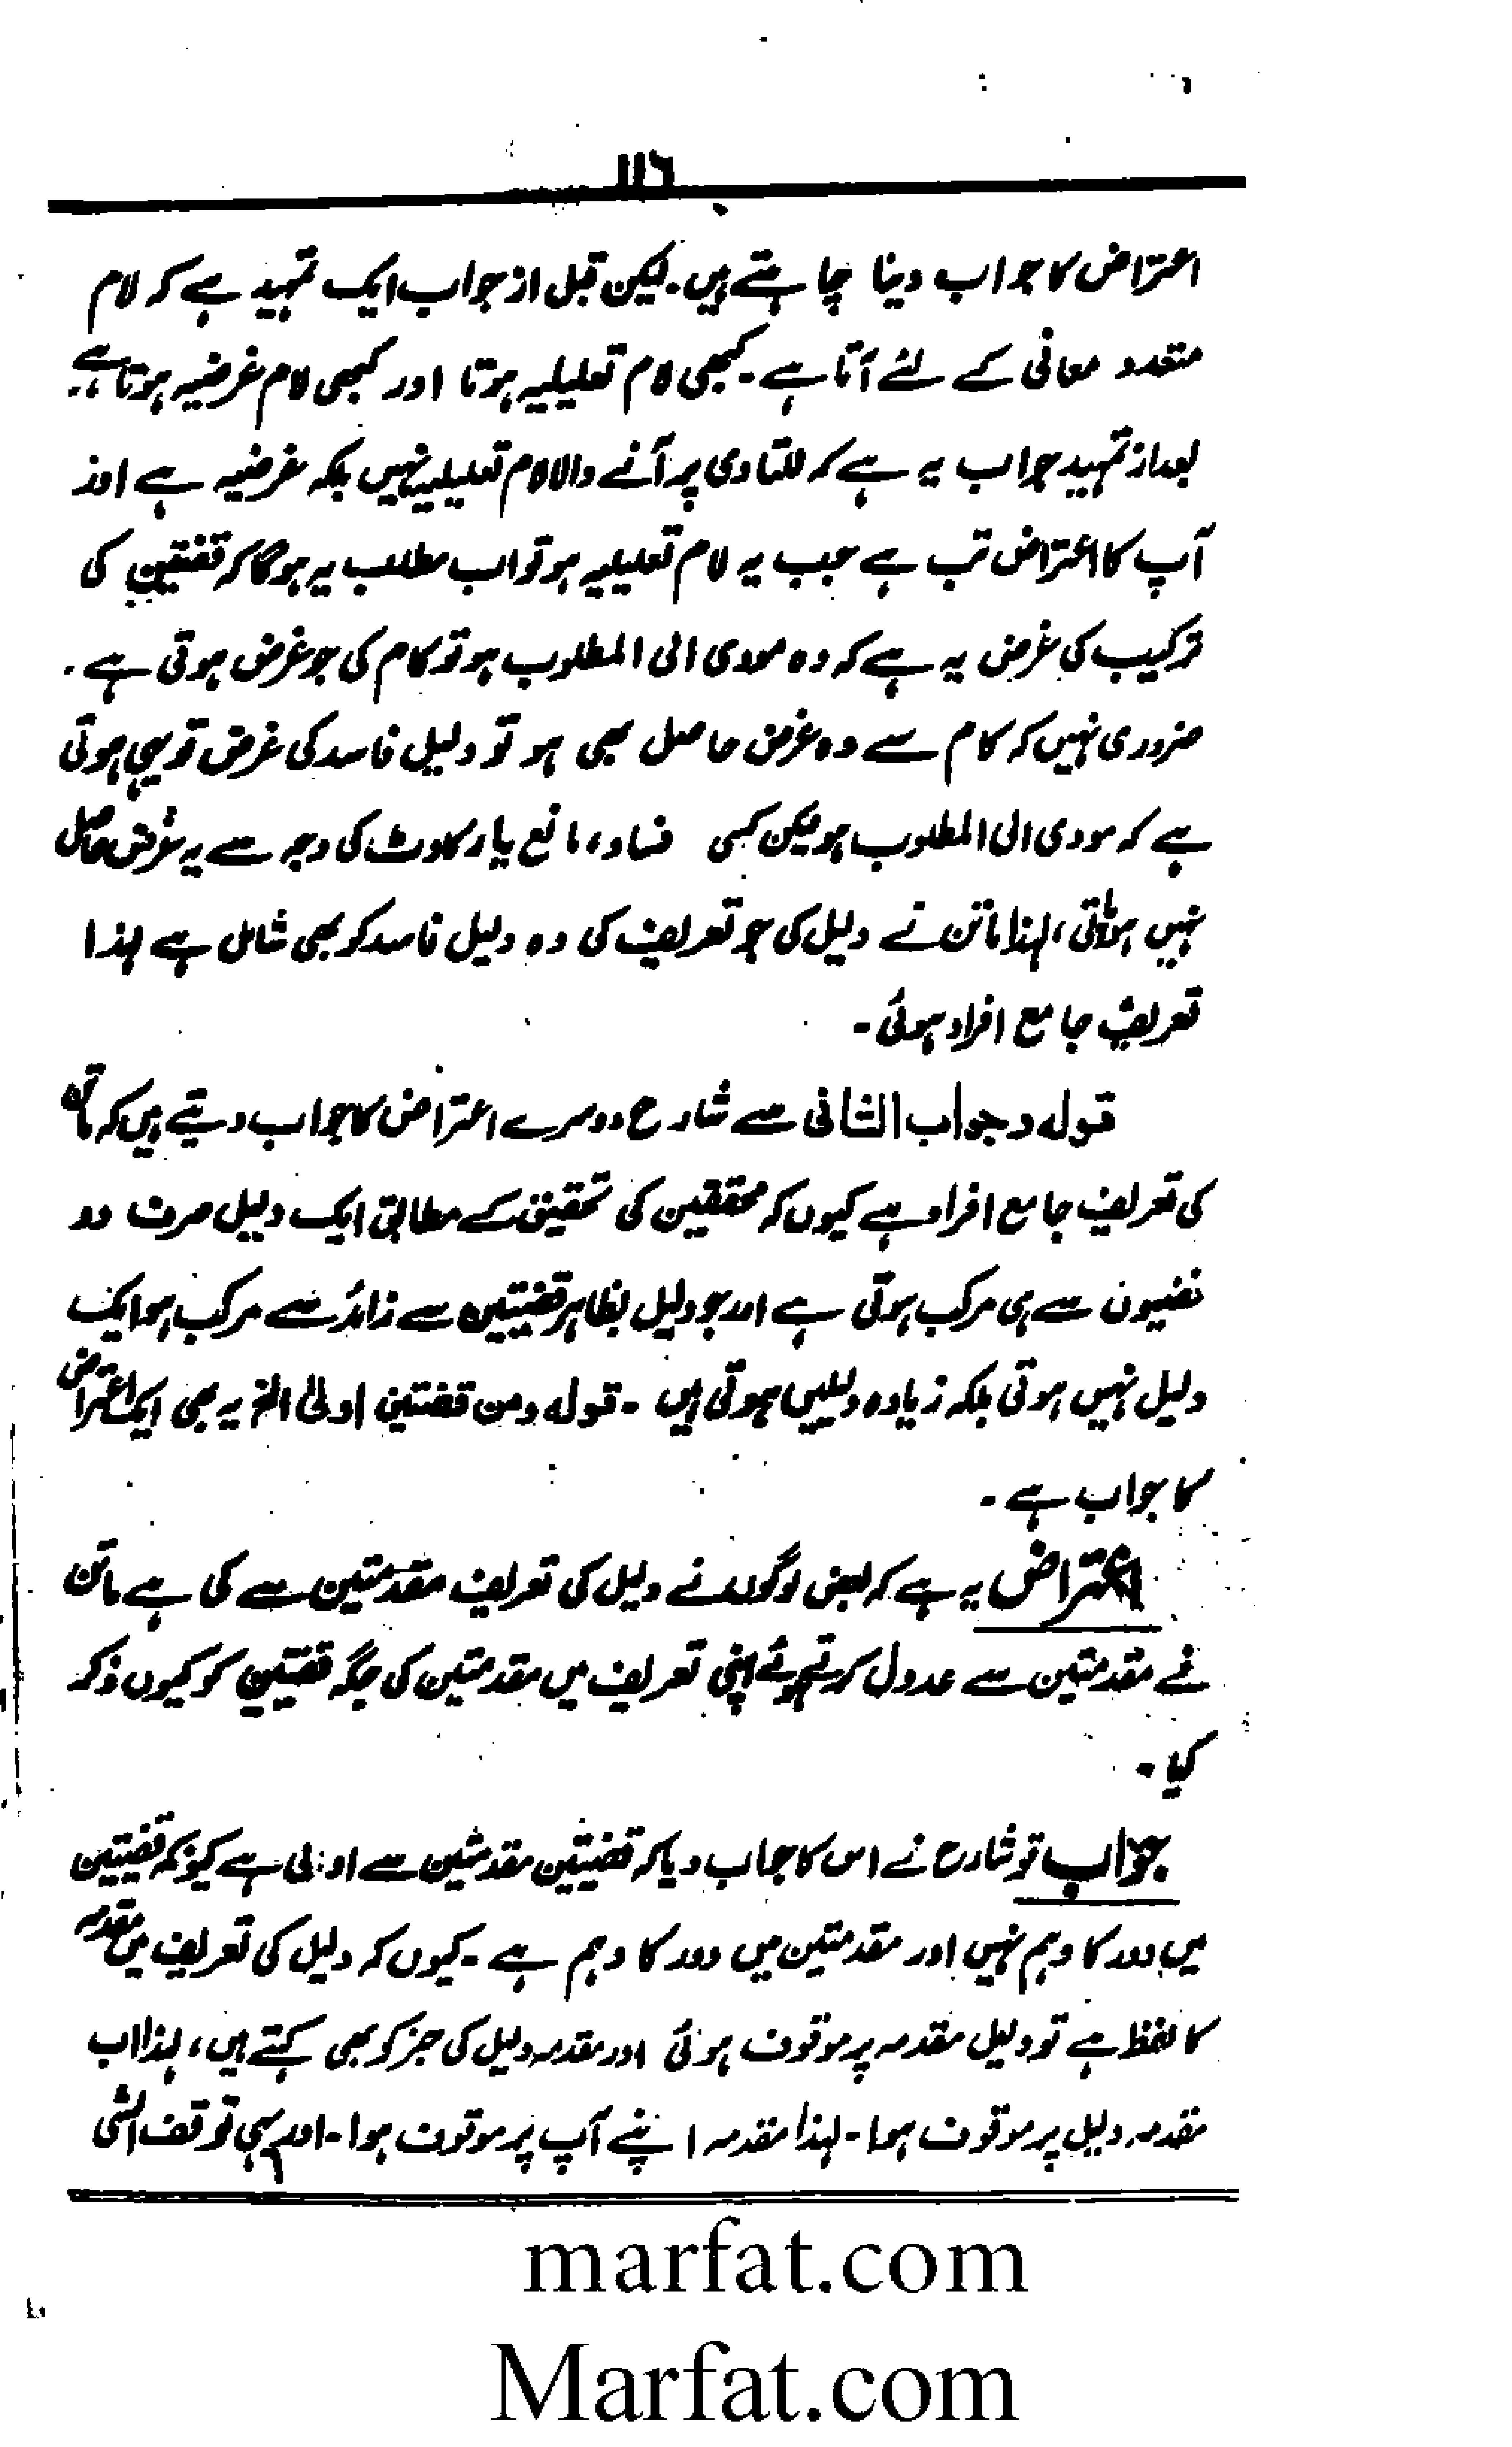 ۱۱٦
اعتراض کا جواب دینا چاہتے ہیں۔ لیکن قبل از جواب ایک تمہید ہے کہ لام
متعدد معانی کے لئے آتا ہے۔ کبھی لام تعلیلیہ ہوتا اور کبھی لام غرضیہ ہوتا ہے۔
بعد از تمہید جواب یہ ہے کہ للتادی پر آنے والا لام تعلیلیہ نہیں بلکہ غرضیہ ہے اور
آپ کا اعتراض تب ہے جب یہ لام تعلیلیہ ہو تو اب مطلب یہ ہوگا کہ قضیتین کی
ترکیب کی غرض یہ ہے کہ وہ مودی الی المطلوب ہو تو کام کی جو غرض ہوتی ہے۔
ضروری نہیں کہ کام سے وہ غرض حاصل بھی ہو تو دلیل فاسد کی غرض تو یہی ہوتی
ہے کہ مودی الی المطلوب ہو لیکن کسی فساد، مانع یا رکاوٹ کی وجہ سے یہ غرض حاصل
نہیں ہوتی، لہذا ماتن نے دلیل کی جو تعریف کی وہ دلیل فاسد کو بھی شامل ہے لہذا
تعریف جامع افراد ہوئی۔
قولہ وجواب الثانی سے شارح دوسرے اعتراض کا جواب دیتے ہیں کہ ماتن
کی تعریف جامع افراد ہے کیوں کہ محققین کی تحقیق کے مطابق ایک دلیل صرف دو
قضیوں سے ہی مرکب ہوتی ہے اور جو دلیل بظاہر قضیتین سے زائد سے مرکب ہو ایک
دلیل نہیں ہوتی بلکہ زیادہ دلیلیں ہوتی ہیں۔ قولہ ومن قضتین اولیٰ الخ یہ بھی ایک اعتراض
کا جواب ہے۔
اعتراض یہ ہے کہ بعض لوگوں نے دلیل کی تعریف مقدمتین سے کی ہے ماتن
نے مقدمتین سے عدول کرتے ہوئے اپنی تعریف میں مقدمتین کی جگہ قضیتین کو کیوں ذکر
کیا۔
جواب تو شارح نے اس کا جاب دیا کہ قضیتین مقدمتین سے اولیٰ ہے کیونکہ قضیتین
میں دور کا وہم نہیں اور مقدمتین میں دور کا وہم ہے۔ کیوں کہ دلیل کی تعریف میں مقدمہ
کا لفظ ہے تو دلیل مقدمہ پر موقوف ہوئی اور مقدمہ دلیل کی جز کو بھی کہتے ہیں، لہذا اب
مقدمہ دلیل پر موقوف ہوا۔ لہذا مقدمہ اپنے آپ پر موقوف ہوا۔ اور یہی توقف الشی
marfat.com
Marfat.com